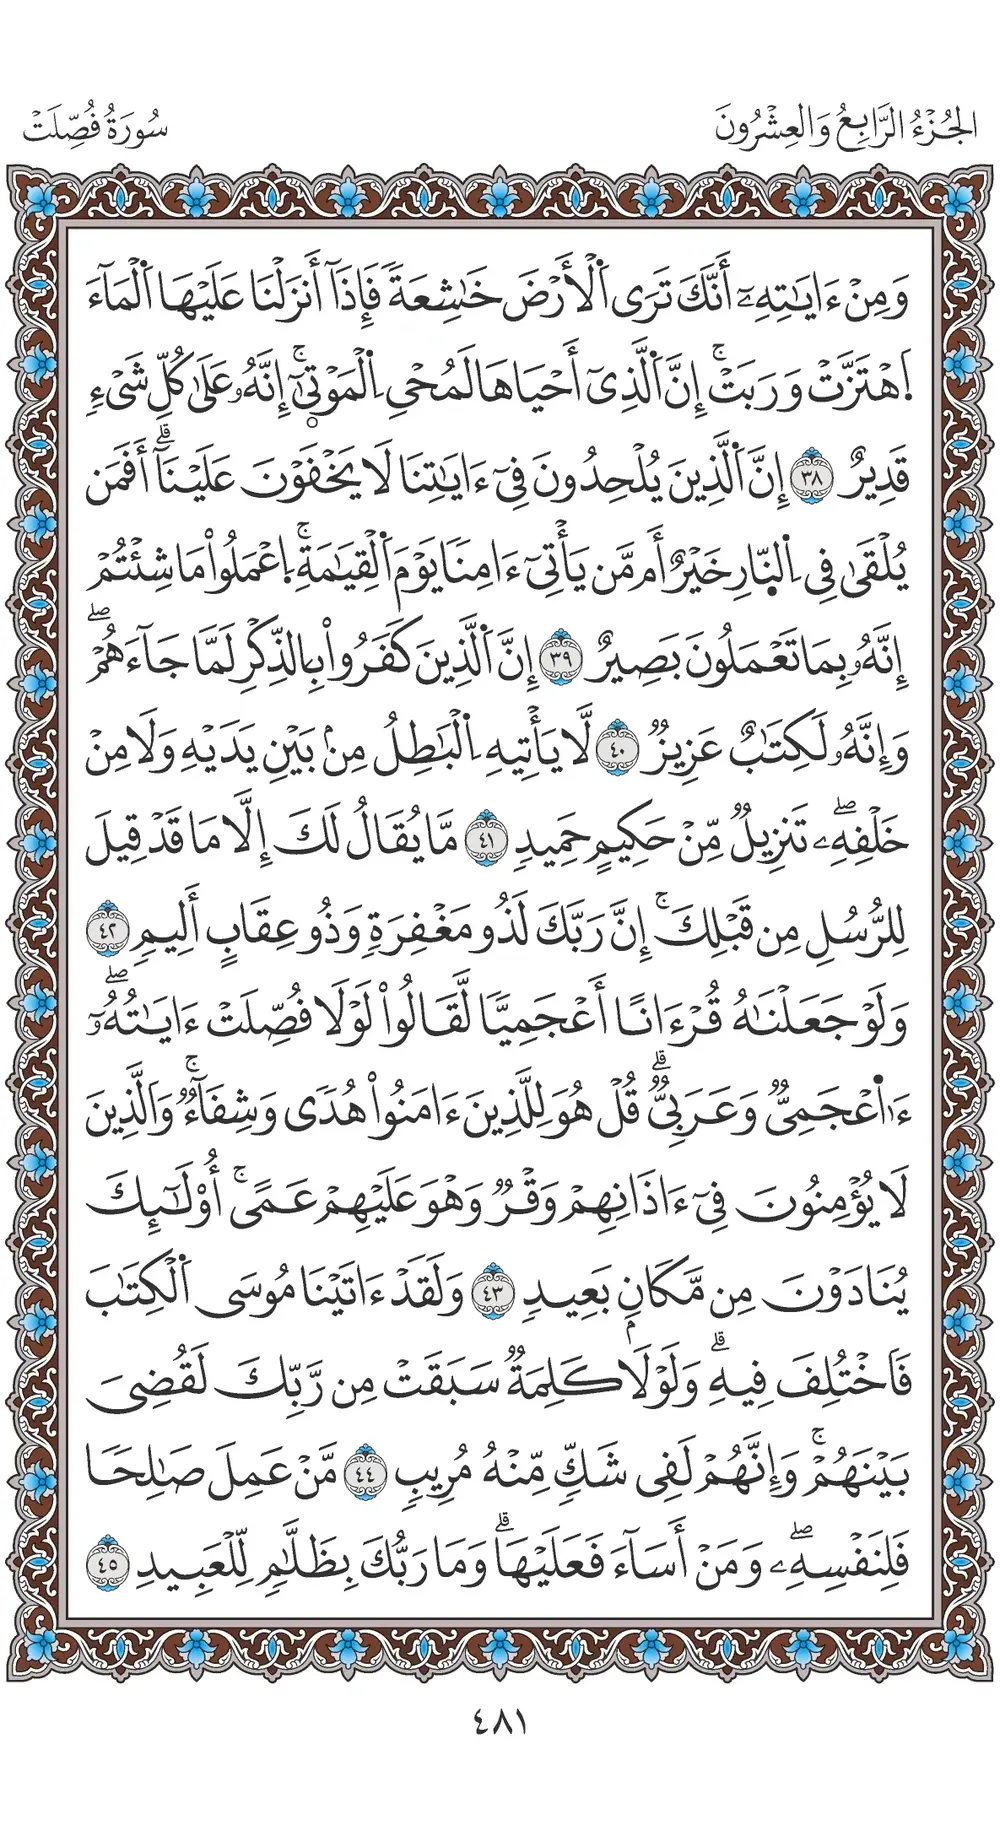 الجُزْءُ الرَّابِعُ وَالعِشْرُونَ
سُورَةُ فُصِّلَتْ
وَمِنْ ءَايَٰتِهِۦٓ أَنَّكَ تَرَى اَ۬لْأَرْضَ خَٰشِعَةٗ فَإِذَآ أَنزَلْنَا عَلَيْهَا اَ۬لْمَآءَ
اَ۪هْتَزَّتْ وَرَبَتْۚ إِنَّ اَ۬لَّذِيٓ أَحْيَاهَا لَمُحْيِ اِ۬لْمَوْتۭيٰٓۚ إِنَّهُۥ عَلَىٰ كُلِّ شَيْءٖ
قَدِيرٌ ٣٨ إِنَّ اَ۬لَّذِينَ يُلْحِدُونَ فِيٓ ءَايَٰتِنَا لَا يَخْفَوْنَ عَلَيْنَآۗ أَفَمَن
يُلْقَىٰ فِي اِ۬لنّ۪ارِ خَيْرٌ أَم مَّن يَأْتِيٓ ءَامِنٗا يَوْمَ اَ۬لْقِيَٰمَةِۚ اِ۪عْمَلُواْ مَا شِئْتُمْ
إِنَّهُۥ بِمَا تَعْمَلُونَ بَصِيرٌ ٣٩ إِنَّ اَ۬لَّذِينَ كَفَرُواْ بِالذِّكْرِ لَمَّا جَآءَهُمْۖ
وَإِنَّهُۥ لَكِتَٰبٌ عَزِيزٞ ٤٠ لَّا يَأْتِيهِ اِ۬لْبَٰطِلُ مِنۢ بَيْنِ يَدَيْهِ وَلَا مِنْ
خَلْفِهِۦۖ تَنزِيلٞ مِّنْ حَكِيمٍ حَمِيدٖ ٤١ مَّا يُقَالُ لَكَ إِلَّا مَا قَدْ قِيلَ
لِلرُّسُلِ مِن قَبْلِكَۚ إِنَّ رَبَّكَ لَذُو مَغْفِرَةٖ وَذُو عِقَابٍ أَلِيمٖ ٤٢
وَلَوْ جَعَلْنَٰهُ قُرْءَانًا أَعْجَمِيّٗا لَّقَالُواْ لَوْلَا فُصِّلَتْ ءَايَٰتُهُۥٓۖ
ءَا۬عْجَمِيّٞ وَعَرَبِيّٞۗ قُلْ هُوَ لِلَّذِينَ ءَامَنُواْ هُدٗى وَشِفَآءٞۚ وَالَّذِينَ
لَا يُؤْمِنُونَ فِيٓ ءَاذَانِهِمْ وَقْرٞ وَهْوَ عَلَيْهِمْ عَمًىۚ أُوْلَٰٓئِكَ
يُنَادَوْنَ مِن مَّكَانِۭ بَعِيدٖ ٤٣ وَلَقَدْ ءَاتَيْنَا مُوسَى اَ۬لْكِتَٰبَ
فَاخْتُلِفَ فِيهِۗ وَلَوْلَا كَلِمَةٞ سَبَقَتْ مِن رَّبِّكَ لَقُضِيَ
بَيْنَهُمْۚ وَإِنَّهُمْ لَفِي شَكّٖ مِّنْهُ مُرِيبٖ ٤٤ مَّنْ عَمِلَ صَٰلِحٗا
فَلِنَفْسِهِۦۖ وَمَنْ أَسَآءَ فَعَلَيْهَاۗ وَمَا رَبُّكَ بِظَلَّٰمٖ لِّلْعَبِيدِ ٤٥
٤٨١